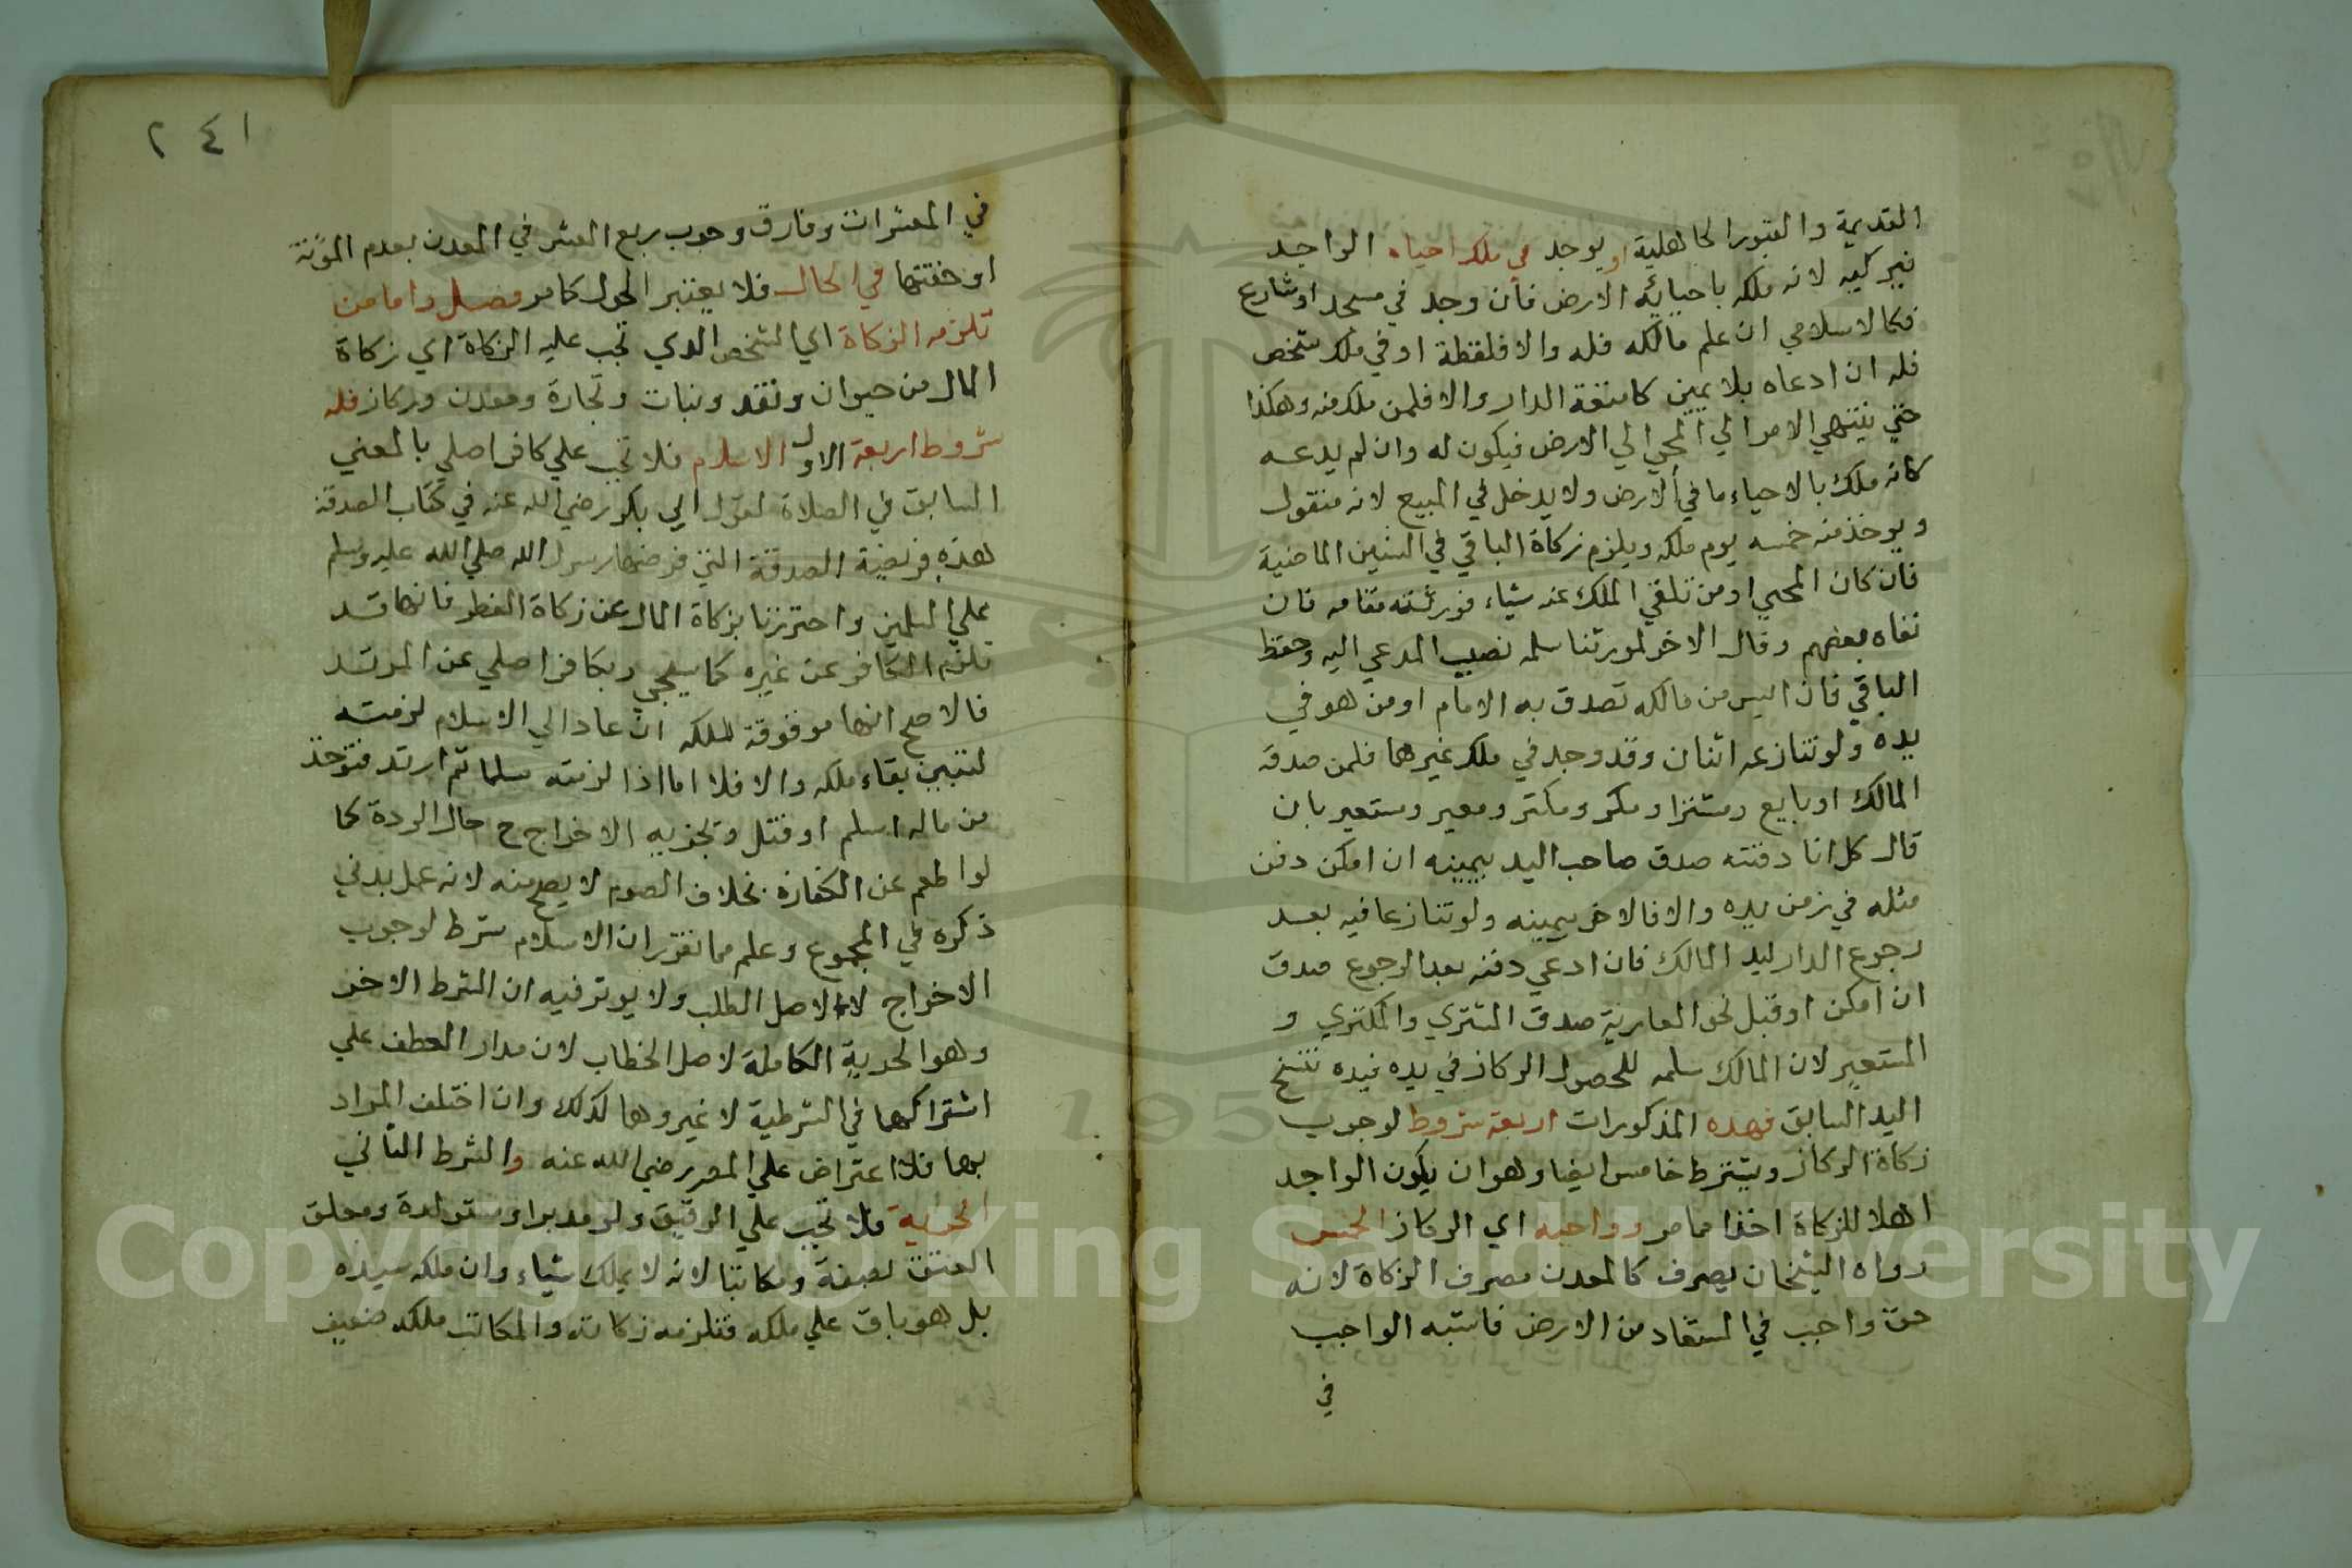 القديمة والقبور الجاهلية او يوجد في ملك احياه الواجد
فيزكيه لانه ملكه باحيائه الارض فان وجد في مسجد او شارع
فكالاسلامي ان علم مالكه فله والا فلقطة او في ملك شخص
فله ان ادعاه بلا يمين كامتعة الدار والا فلمن ملك منه وهكذا
حتي ينتهي الامر الي المحيي الي الارض فيكون له وان لم يدعه
كانه ملك بالاحياء ما في الارض ولا يدخل في المبيع لانه منقول
ويوخذ منه خمسه يوم ملكه ويلزم زكاة الباقي في السنين الماضية
فان كان المحيي او من تلقي الملك عنه شياء فورثته مقامه فان
نفاه بعضهم وقال الاخر لمورثنا سلمه نصيب المدعي اليه وحفظ
الباقي فان ايس من مالكه تصدق به الامام او من هو في
يده ولو تنازعه اثنان وقد وجد في ملك غيرهما فلمن صدقه
المالك او بايع ومشترا ومكر ومكتر ومعير ومستعير بان
قال كل انا دفنته صدق صاحب اليد بيمينه ان امكن دفن
مثله في زمن يده والا فالاخر بيمينه ولو تنازعا فيه بعد
رجوع الدار ليد المالك فان ادعي دفنه بعد الرجوع صدق
ان امكن او قبل نحو العارية صدق المشتري والمكتري و
المستعير لان المالك سلمه للحصول الركاز في يده فيده تنسخ
اليد السابق فهذه المذكورات اربعة شروط لوجوب
زكاة الركاز ويشترط خامس ايضا وهو ان يكون الواجد
اهلا للزكاة اخذا مما مر وواجبه اي الركاز الخمس
رواه الشيخان يصرف كالمعدن مصرف الزكاة لانه
حق واجب في المستفاد من الارض فاشبه الواجب
في
٢٤١
في المعشرات وفارق وجوب ربع العشر في المعدن بعدم المؤنة
او خفتها في الحال فلا يعتبر الحول كما مر فصل واما من
تلزمه الزكاة اي الشخص الذي تجب عليه الزكاة اي زكاة
المال من حيوان ونقد ونبات وتجارة ومعدن وركاز فله
شروط اربعة الاول الاسلام فلا تجب علي كافر اصلي بالمعني
السابق في الصلاة لقول ابي بكر رضي الله عنه في كتاب الصدقة
هذه فريضة الصدقة التي فرضها رسول الله صلي الله عليه وسلم
علي المسلمين واحترزنا بزكاة المال عن زكاة الفطر فانها قد
تلزم الكافر عن غيره كما سيجي وبكافر اصلي عن المرتد
فالاصح انها موقوفة لملكه ان عاد الي الاسلام لزمته
لتبين بقاء ملكه والا فلا اما اذا لزمته مسلما ثم ارتد فتوخذ
من ماله اسلم او قتل وتجزيه الاخراج ح حال الردة كما
لو اطعم عن الكفارة بخلاف الصوم لا يصح منه لانه عمل بدني
ذكره في المجموع وعلم مما تقرر ان الاسلام شرط لوجوب
الاخراج لا لاصل الطلب ولا يوثر فيه ان الشرط الاخر
وهو الحرية الكاملة لاصل الخطاب لان مدار العطف علي
اشتراكهما في الشرطية لا غير وهما لذلك وان اختلف المراد
بهما فلا اعتراض علي المص رضي الله عنه والشرط الثاني
الحرية فلا تجب علي الرقيق ولو مدبرا ومستولدة ومعلق
العتق بصفة ومكاتبا لانه لا يملك شياء وان ملكه سيده
بل هو باق علي ملكه فتلزمه زكاته والمكاتب ملكه ضعيف
Copyright © King Saud University
1957